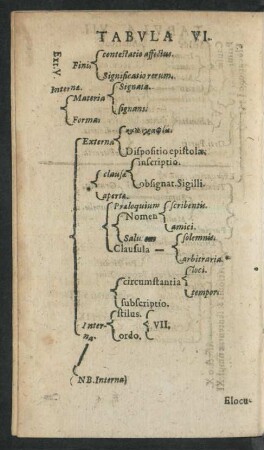 TABVLA VI.
Ext. V
contestatio affectus.
Finis
Significatio rerum.
Internæ.
Signata.
Materia
signans.
Formæ.
Externa
Dispositio epistolæ.
inscriptio.
clausæ
obsignat. Sigilli.
apertæ.
Præloquium
scribentis.
Nomen
amici.
Salu
solemnis.
Clausula
arbitraria.
loci.
circumstantia
temporis
subscriptio.
Inter-
na.
stilus.
VII,
ordo.
(NB. Interna)
Elocu-